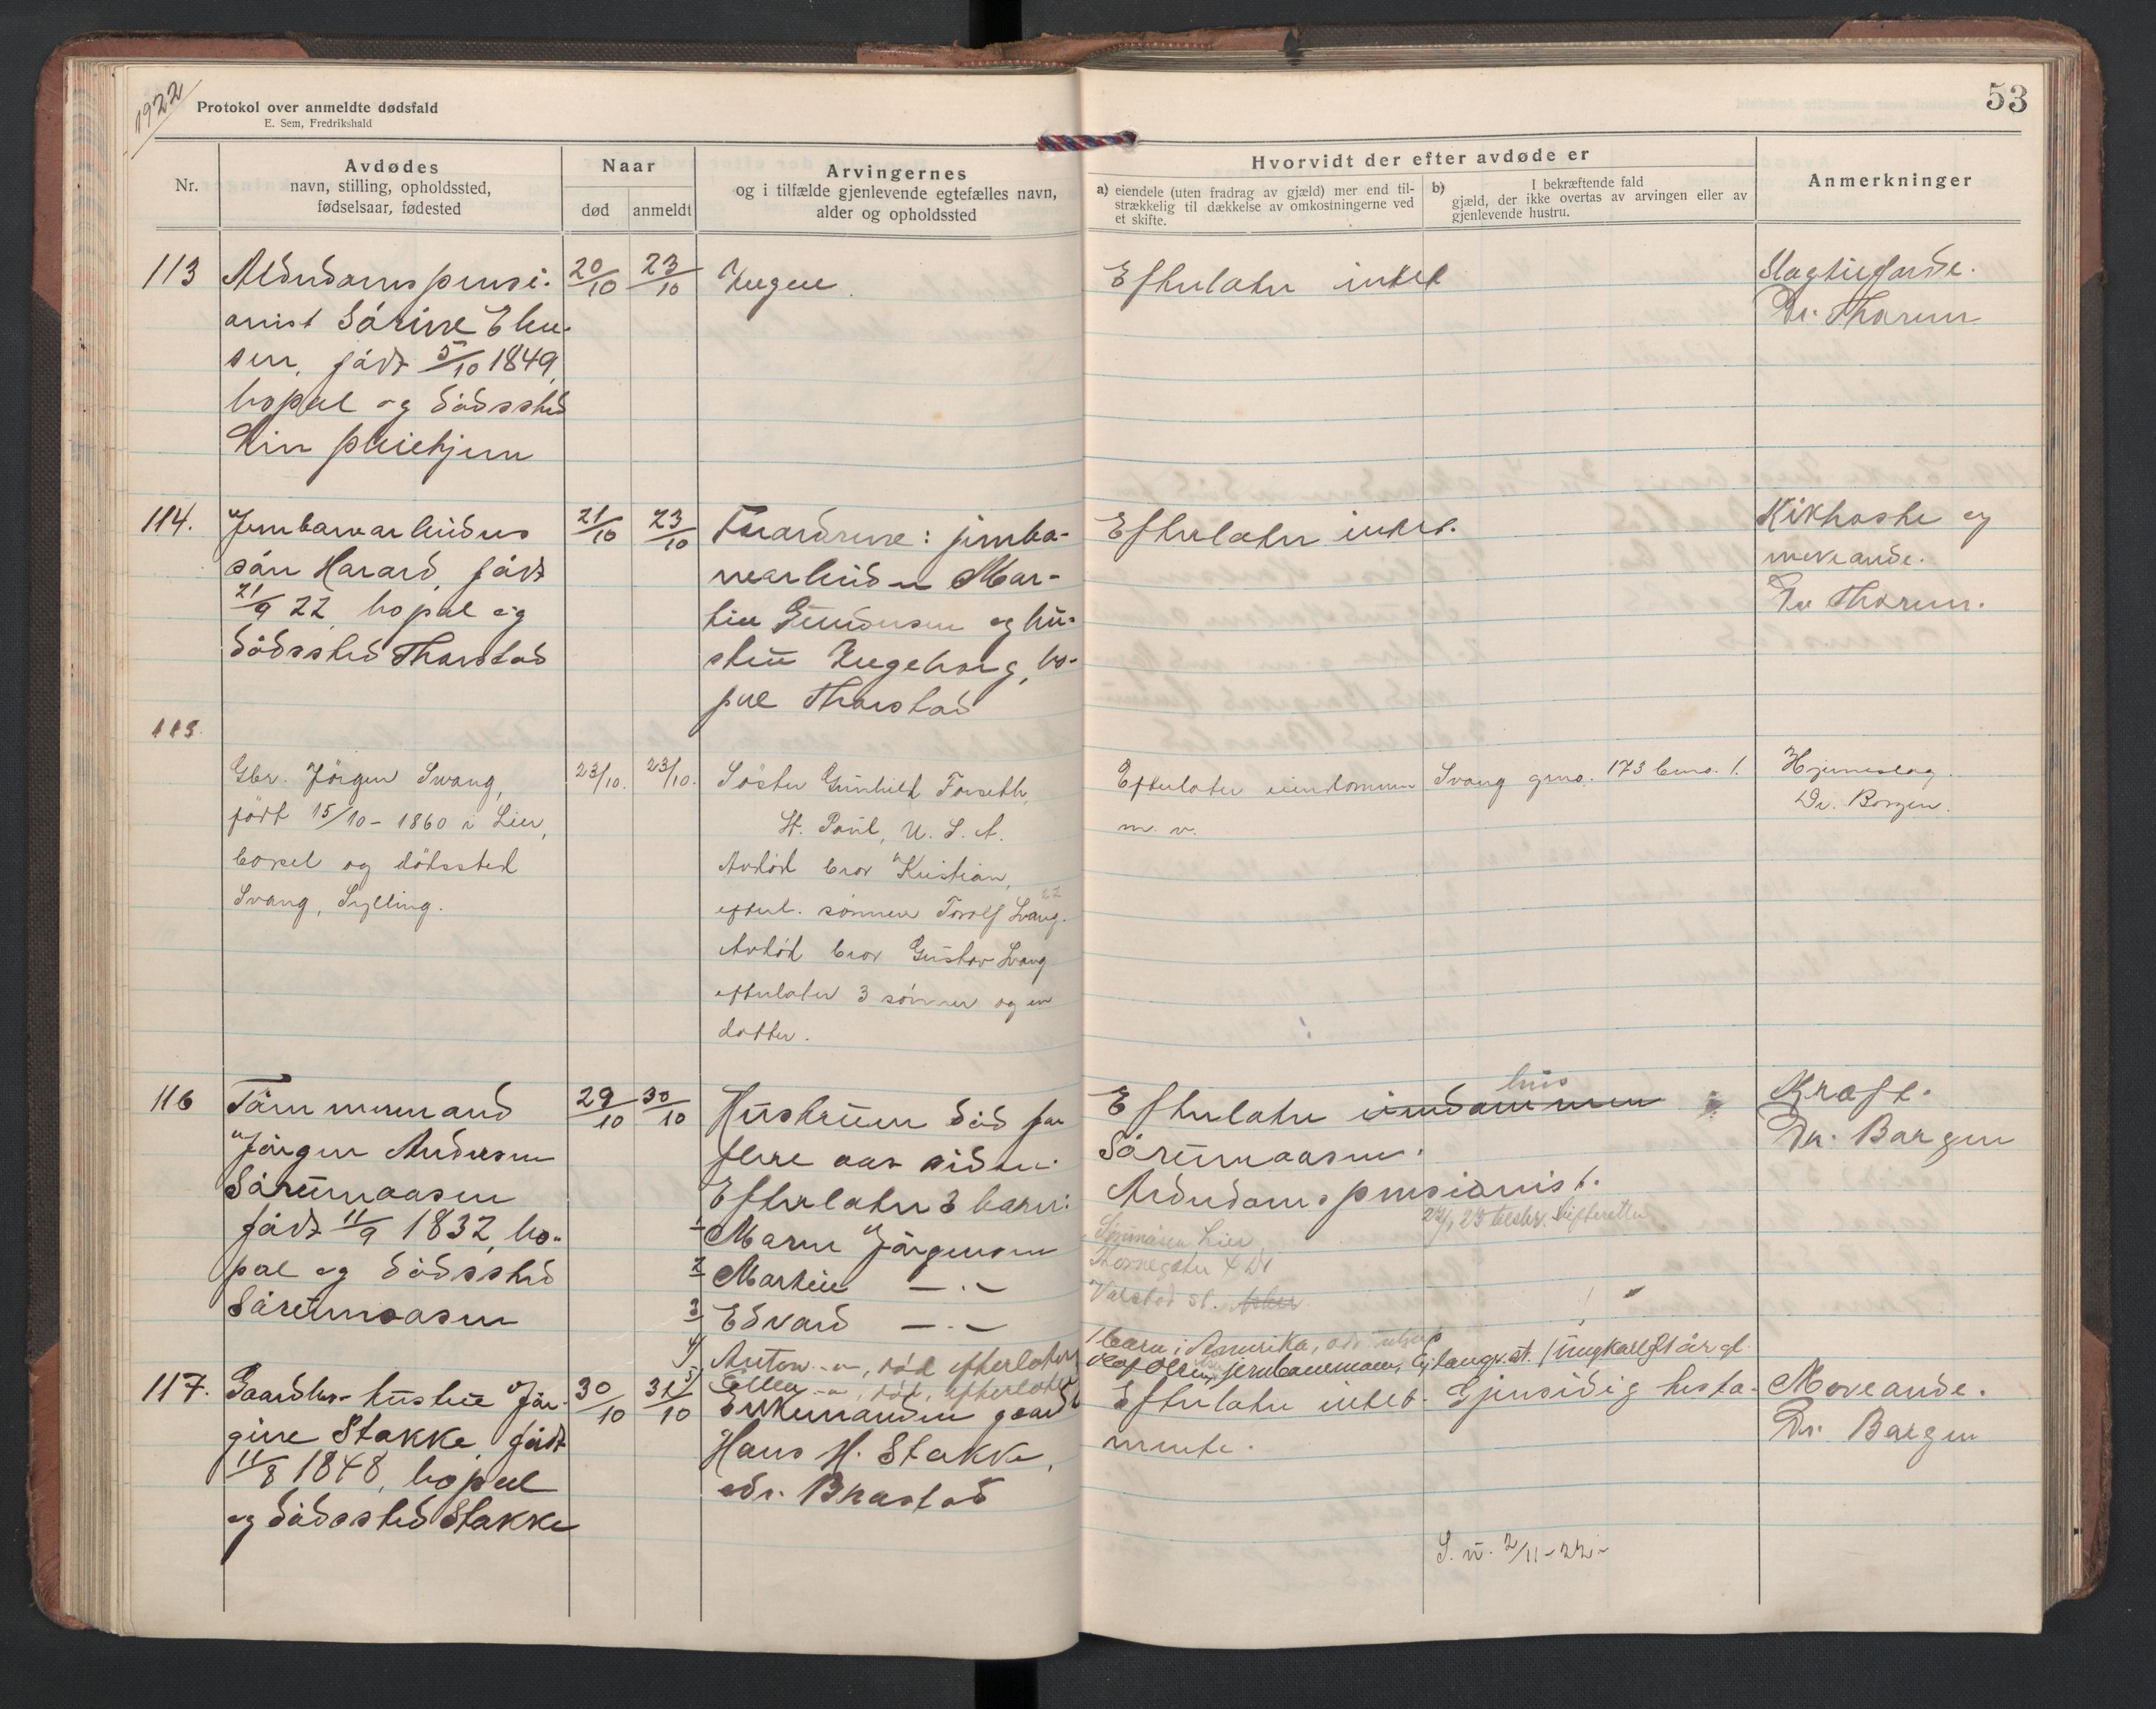 1922
Protokol over anmeldte dødsfald
E. Sem, Fredrikshald
53
Nr.
Avdødes
navn, stilling, opholdssted,
fødselsaar, fødested
Naar
død
anmeldt
Arvingernes
og i tilfælde gjenlevende egtefælles navn,
alder og opholdssted
Hvorvidt der efter avdøde er
a) eiendele (uten fradrag av gjæld) mer end til-
strækkelig til dækkelse av omkostningerne ved
et skifte.
b) I bekræftende fald
gjæld, der ikke overtas av arvingen eller av
gjenlevende hustru.
Anmerkninger
113
Alderdomspensi-
onist Sørine
sen, født 5/10 1849,
bopæl og dødssted
Lier pleiehjem
20/10
23/10
Ingen
Efterlater intet
Slagtilfælde.
Dr. Thorum
114.
Jernbanearbeiders
søn Harard, født
21/9 22, bopæl og
dødssted Thorstad
21/10
23/10
Forældrene: jernba-
nearbeider Mar-
tin Gundersen og hu-
stru Ingeborg, bo-
pæl Thorstad
Efterlater intet.
Kikhoste og
meveande.
Dr Thorum.
115.
Gbr. Jörgen Svang,
födt 15/10 - 1860 i Lier,
bopæl og dödssted
Svang, Sylling.
23/10.
23/10.
Söster Gunhild Forseth,
St. Paul, U. S. A.
Avdöd bror Kristian,
efterl. sönnen Torolf Svang.
Avdöd bror Gustav Svang
efterlater 3 sönner og en
datter.
Efterlater eiendommen
m. v.
Svang gno. 173 bno. 1.
Hjerneslag.
Dr. Borgen.
116
Tømmermand
Jørgen Andersen
Sørumaasen
født 11/9 1832, bo-
pæl og dødssted
Sørumaasen
29/10
30/10
Hustruen død for
flere aar siden.
Efterlater 3 barn:
1 Maren Jørgensen
2 Martin — . —
3 Edvard — . —
4) Anton - " -, död efterlater
5) - " -, död, efterlater
Efterlater eiendommen hus
Sørumaasen.
Alderdomspensionist.
Lier
1 barn i Amerika,
Kraft.
Dr. Borgen
117.
Gaardbr. hustru Jør-
gine Stokke, født
11/8 1848, bopæl
og dødssted Stokke
30/10
31/10
Enkemanden gaardb
Hans H. Stokke,
adr. Brastad
Efterlater intet. Gjensidig testa-
mente.
S. u. 2/11-22-
Meveande.
Dr. Borgen